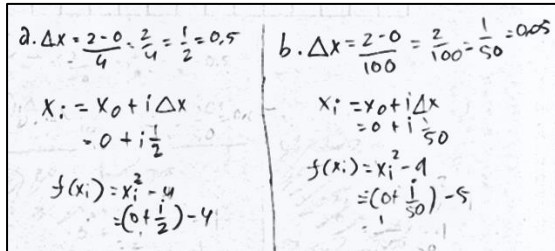 a. Δx = (2-0)/4 = 2/4 = 1/2 = 0,5
x_i = x_0 + iΔx
= 0 + i 1/2
f(x_i) = x_i² - 4
= (0 + i/2) - 4
b. Δx = (2-0)/100 = 2/100 = 1/50 = 0,05
x_i = x_0 + iΔx
= 0 + i 1/50
f(x_i) = x_i² - 9
= (0 + i/50) - 5